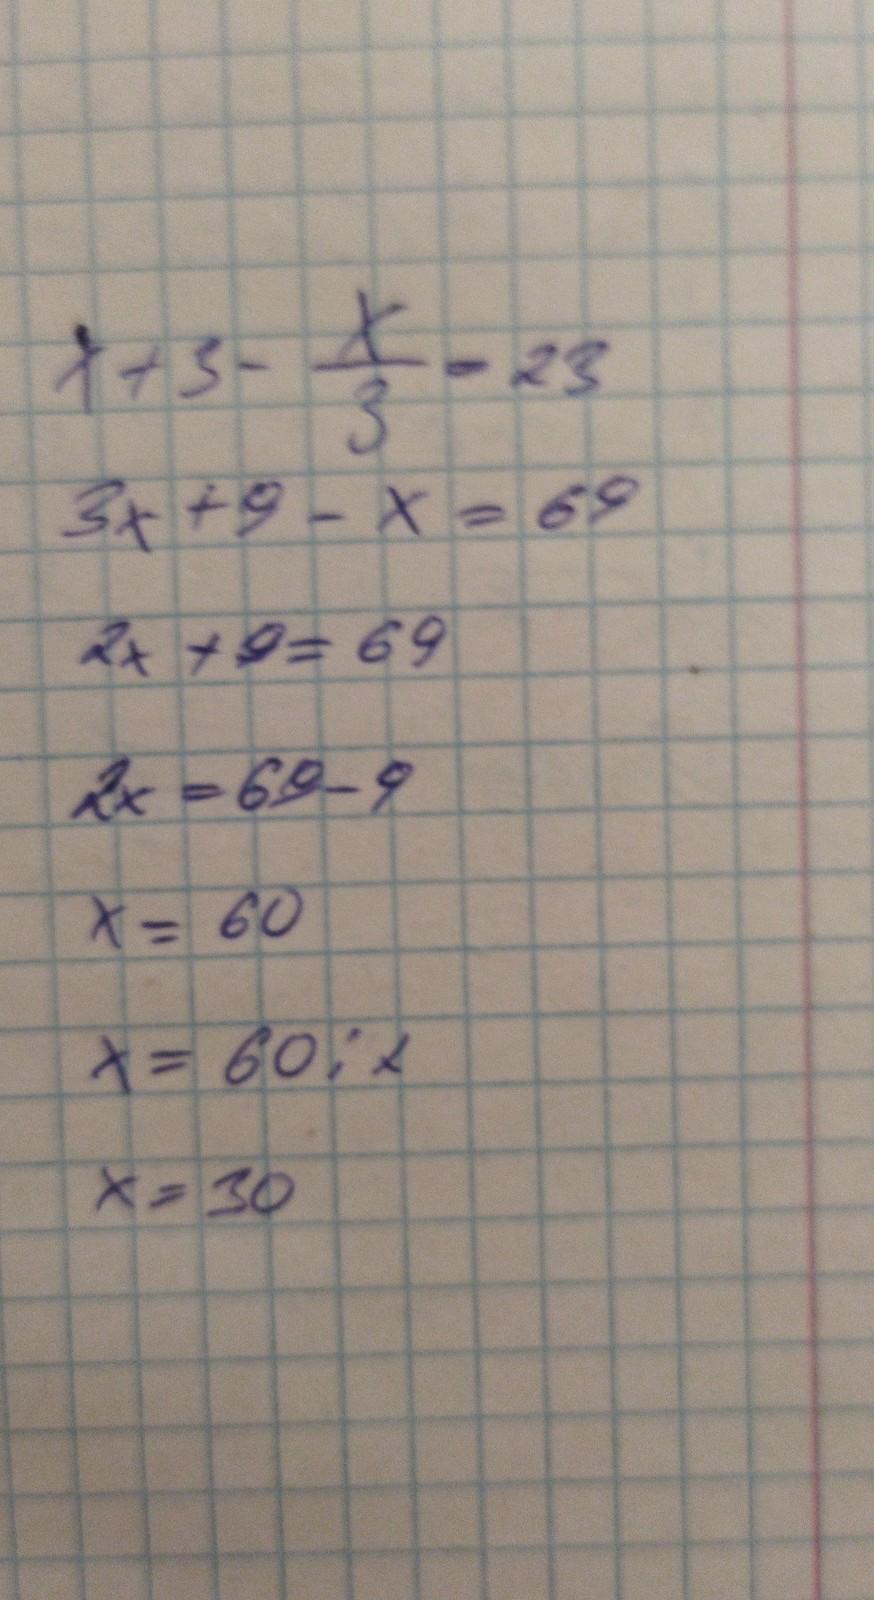 x + 3 - x/3 = 23
3x + 9 - x = 69
2x + 9 = 69
2x = 69 - 9
x = 60
x = 60 : 2
x = 30